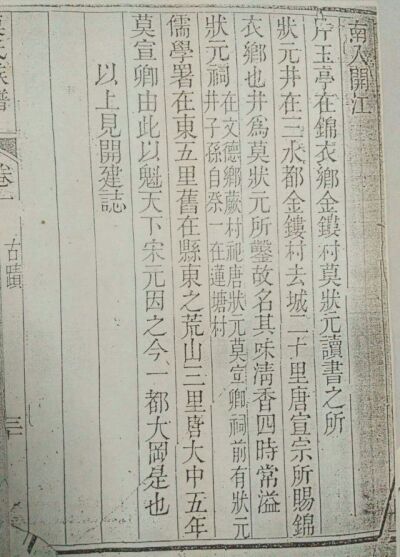 南入開江
片玉亭在錦衣鄉金鏤村莫狀元讀書之所
狀元井在三水都金鏤村去城二十里唐宣宗所賜錦
衣鄉也井爲莫狀元所鑿故名其味清香四時常溢
狀元祠在文德鄉蕨村祀唐狀元莫宣卿祠前有狀元
井子孫自祭一在蓮塘村
儒學署在東五里舊在縣東之荒山三里唐大中五年
莫宣卿由此以魁天下宋元因之今一都大岡是也
以上見開建誌
氏族譜
卷一
古蹟
三